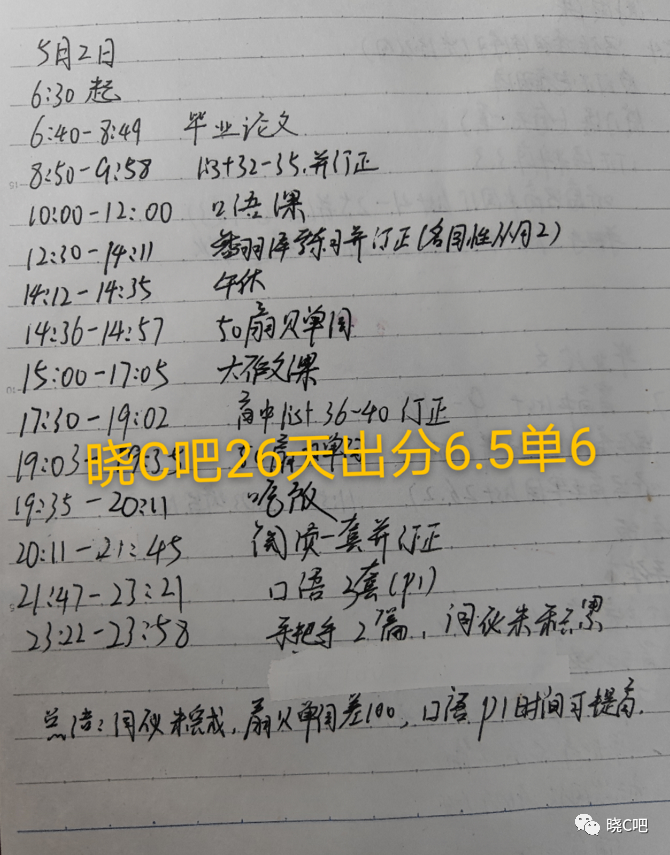 5月2日
6:30 起
6:40-8:49 毕业论文
8:50-9:58 list 32-35,并订正
10:00-12:00 口语课
12:30-14:11 翻译练习并订正(名词性从句2)
14:12-14:35 午休
14:36-14:57 50扇贝单词
15:00-17:05 大作文课
17:30-19:02 高中list 36-40 订正
晓C吧26天出分6.5单6
19:03-19:35
19:35-20:11 吃饭
20:11-21:45 阅读一套并订正
21:47-23:21 口语3套(p1)
23:22-23:58 手把手2篇,词伙未积累
总结:词伙未完成,扇贝单词差100,口语p1时间可提高.
晓C吧